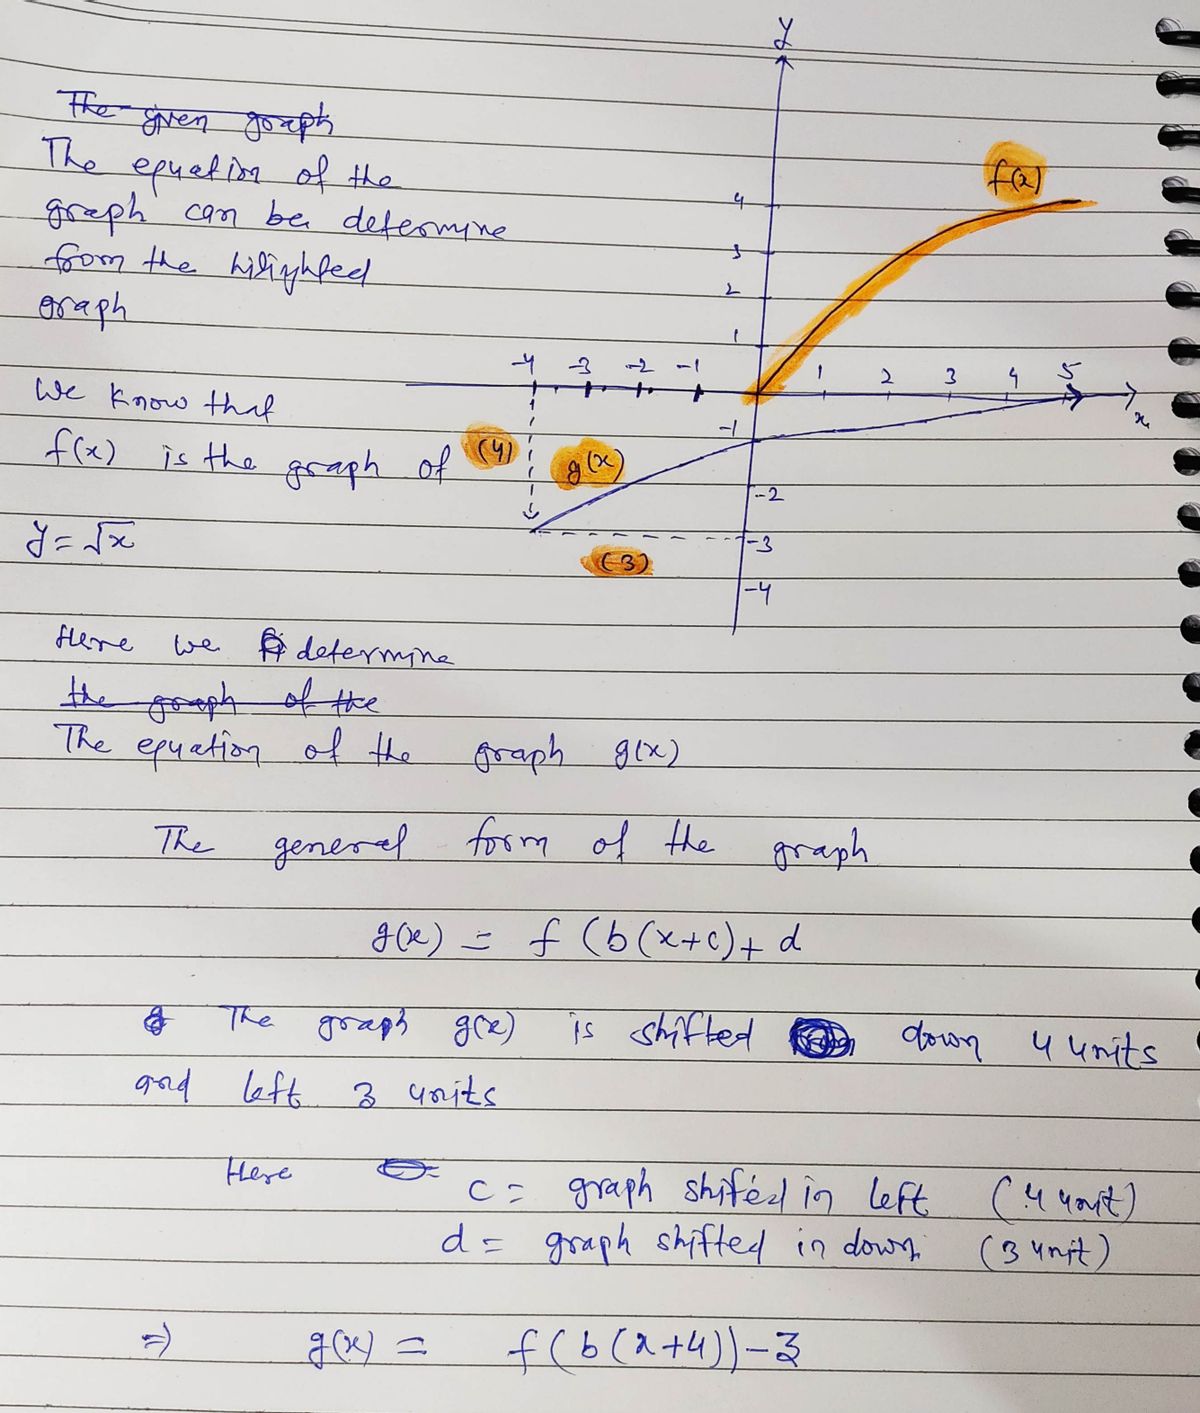 The given graph
The equation of the
graph can be determine
from the hilighted
graph
We know that
f(x) is the graph of
y = √x
y
f(x)
4
3
2
1
-4 -3 -2 -1
1 2 3 4 5
x
-1
(4)
g(x)
-2
-3
(-3)
-4
Here we determine
the graph of the
The equation of the graph g(x)
The general form of the graph
g(x) = f (b(x+c)+ d
The graph g(x) is shifted down 4 units
and left 3 units
Here
c = graph shifted in left (4 unit)
d = graph shifted in down (3 unit)
⇒ g(x) = f(b(x+4))-3